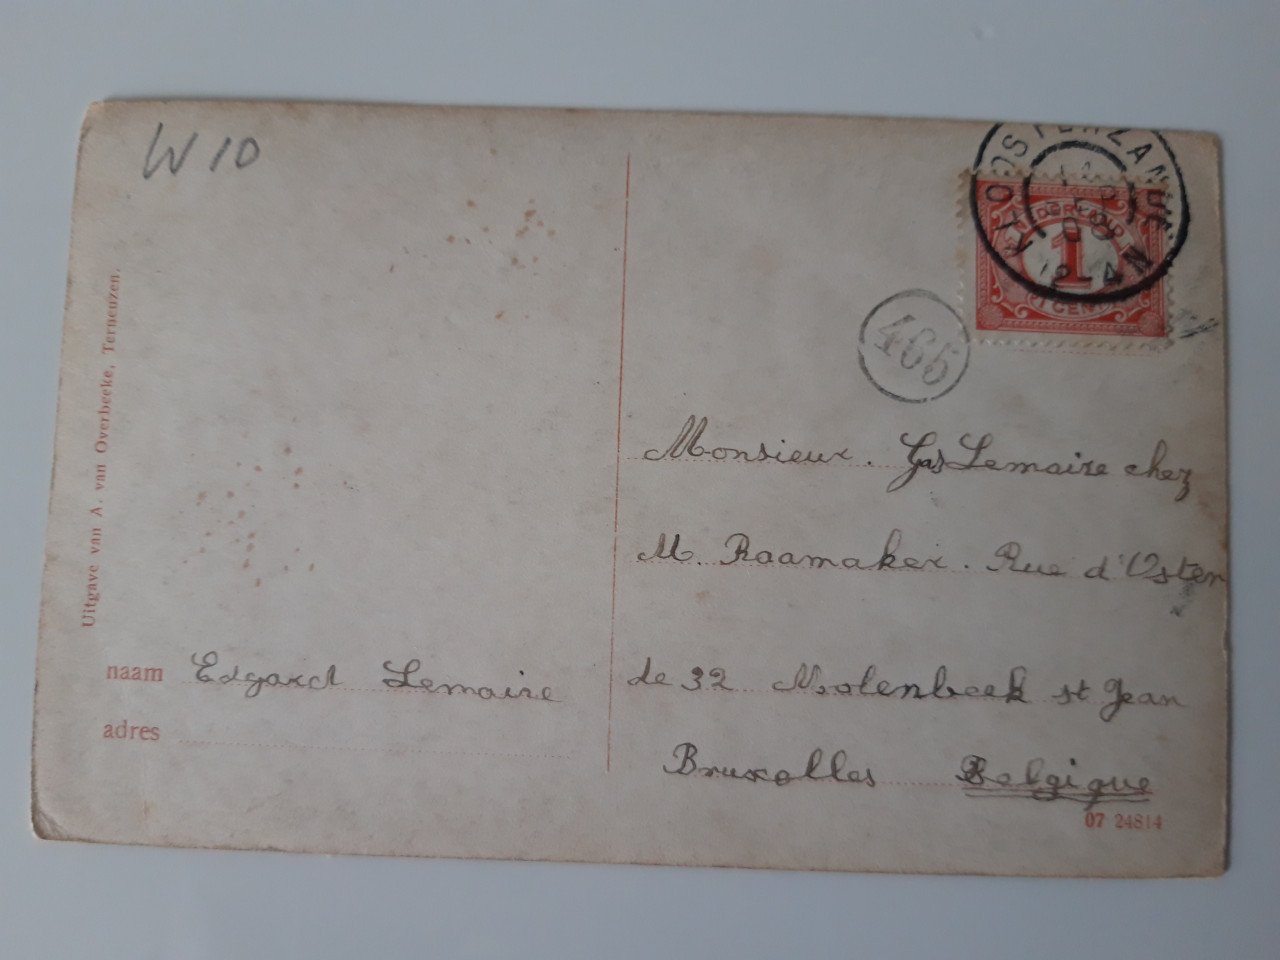 W 10
KLOOSTERZANDE
12-4N
NEDERLAND
1
1 CENT
466
Uitgave van A. van Overbeeke, Terneuzen.
Monsieur. Gas Lemaire chez
M. Raamaker. Rue d'Osten
de 32 Molenbeek st Jean
Bruxelles Belgique
naam Edgard Lemaire
adres
07 24814